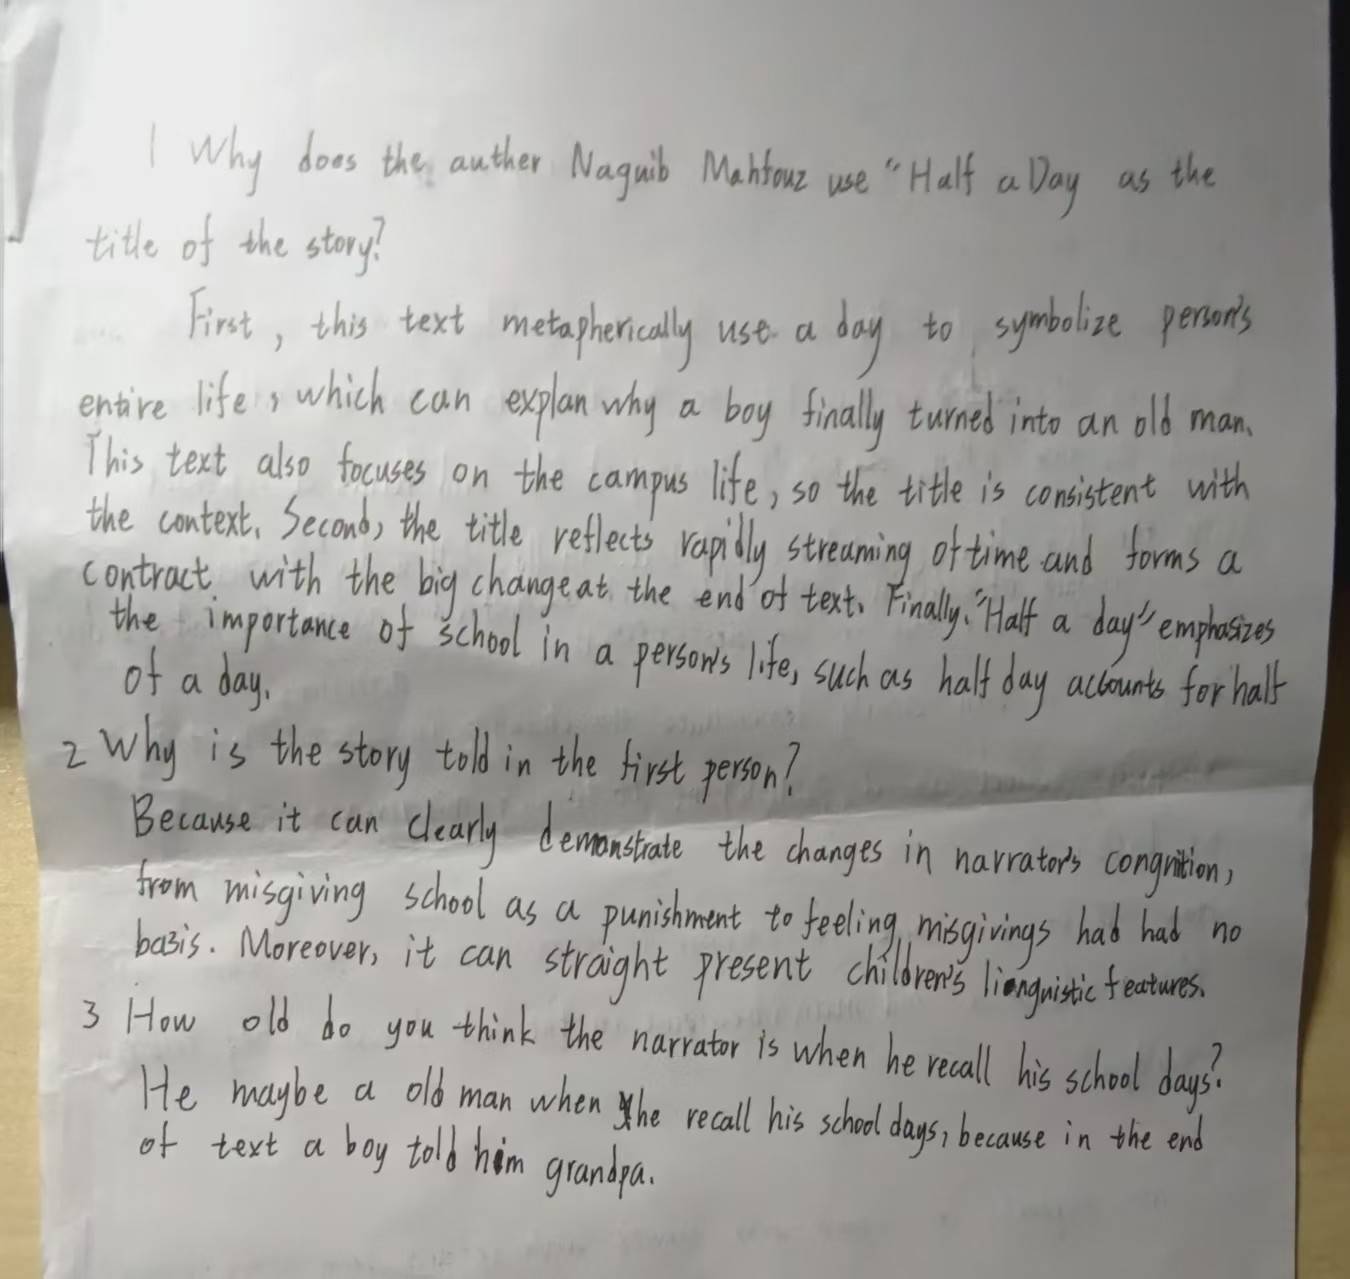 1 Why does the auther Naguib Mahfouz use "Half a Day as the
title of the story?
First, this text metapherically use a day to symbolize person's
entire life, which can explan why a boy finally turned into an old man.
This text also focuses on the campus life, so the title is consistent with
the context. Second, the title reflects rapidly streaming of time and forms a
contract with the big change at the end of text. Finally, "Half a day" emphasizes
the importance of school in a person's life, such as half day accounts for half
of a day.
2 Why is the story told in the first person?
Because it can clearly demonstrate the changes in narrator's congnition,
from misgiving school as a punishment to feeling misgivings had had no
basis. Moreover, it can straight present children's lienguistic features.
3 How old do you think the narrator is when he recall his school days?
He maybe a old man when he recall his school days, because in the end
of text a boy told him grandpa.